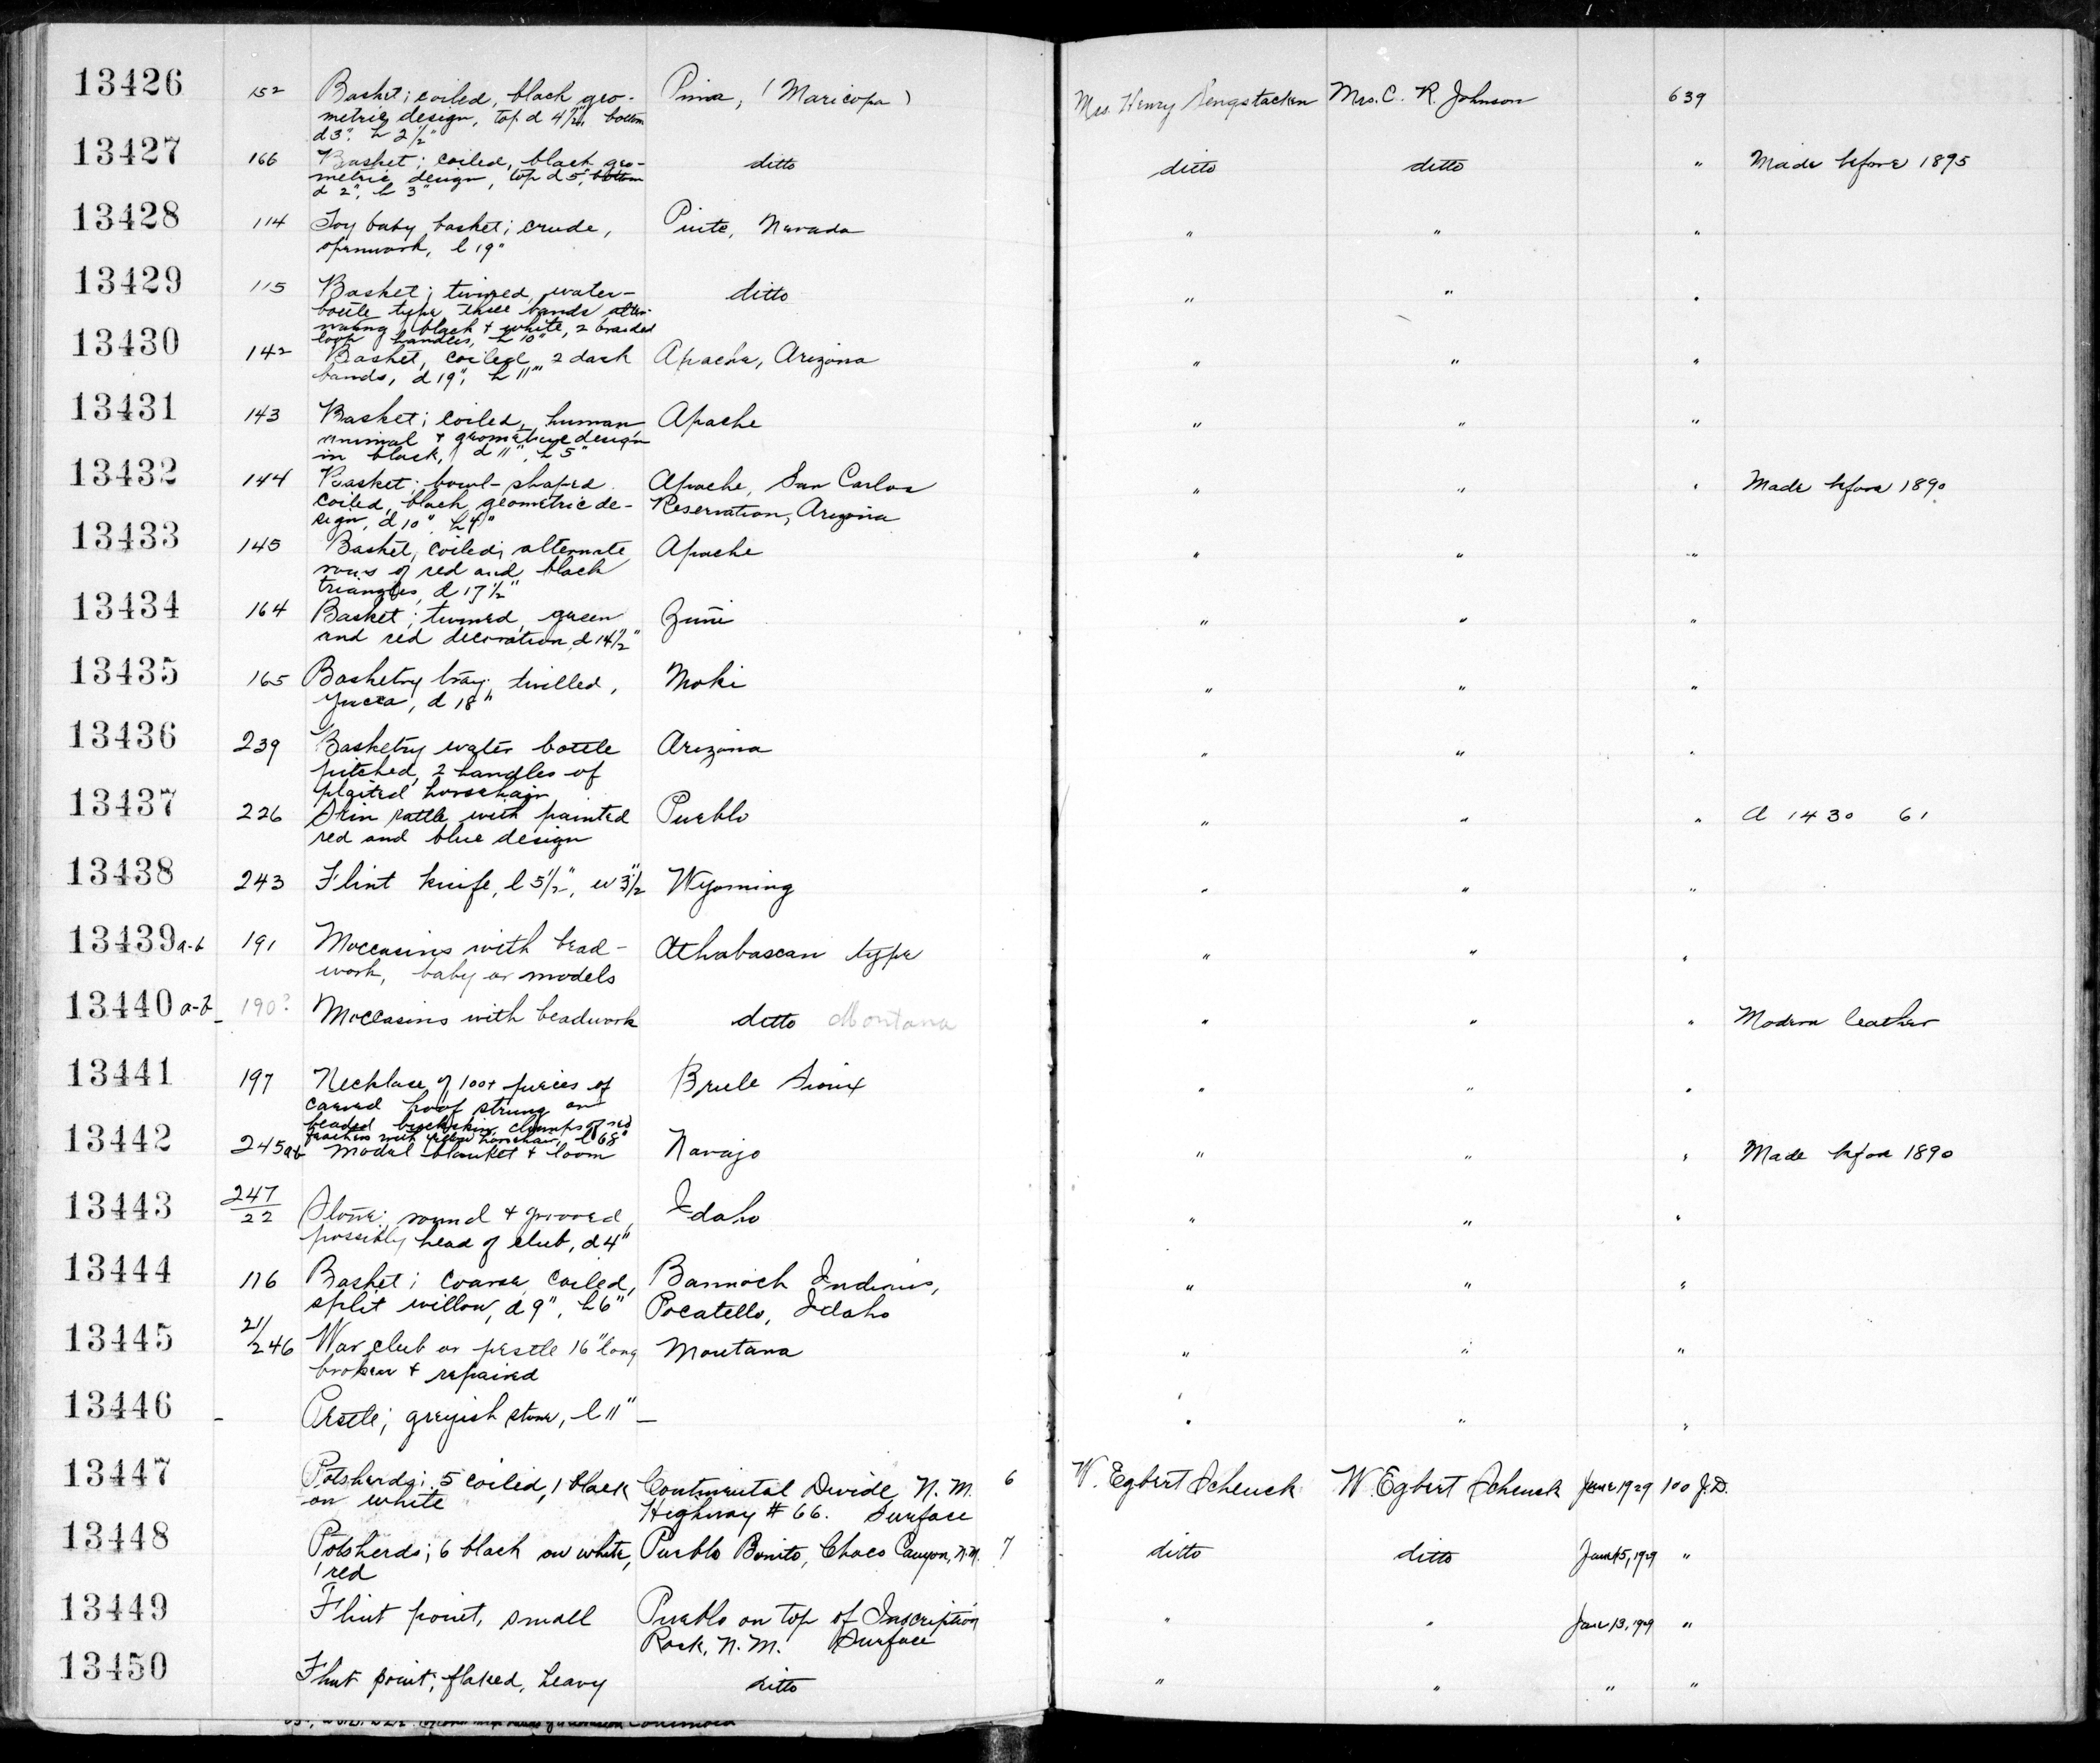 13426 152 Basket; coiled, black geo- Pima, (Maricopa) Mrs. Henry Sengstacken Mrs. C. R. Johnson 639
metric design, top d 4½", bottom
d 3", h 2½"
13427 166 Basket; coiled, black geo- ditto ditto ditto " Made before 1895
metric design, top d 5", bottom
d 2", h 3"
13428 114 Toy baby basket; crude, Piute, Nevada " " "
openwork, l 19"
13429 115 Basket; twined, water- ditto " " "
bottle type, three bands alter-
nating black & white, 2 braided
loop handles, h 10"
13430 142 Basket, coiled, 2 dark Apache, Arizona " " "
bands, d 19", h 11"
13431 143 Basket; coiled, human Apache " " "
animal & geometric design
in black, d 11", h 5"
13432 144 Basket; bowl-shaped Apache, San Carlos " " " Made before 1890
coiled, black geometric de- Reservation, Arizona
sign, d 10", h 4"
13433 145 Basket, coiled; alternate Apache " " "
rows of red and black
triangles, d 17½"
13434 164 Basket; twined, green Zuñi " " "
and red decoration, d 14½"
13435 165 Basketry tray; twilled, Moki " " "
yucca, d 18"
13436 239 Basketry water bottle Arizona " " "
pitched, 2 handles of
plaited horsehair
13437 226 Skin rattle with painted Pueblo " " " A 1430 61
red and blue design
13438 243 Flint knife, l 5½", w 3½" Wyoming " " "
13439 a-b 191 Moccasins with bead- Athabascan type " " "
work, baby or models
13440 a-b 190? Moccasins with beadwork ditto Montana " " " Modern leather
13441 197 Necklace of 100+ pieces of Brule Sioux " " "
carved hoof strung on
beaded buckskin, clumps of red
feathers with yellow horsehair, l 68"
13442 245ab Model blanket & loom Navajo " " " Made before 1890
13443 247/22 Stone; round & grooved, Idaho " " "
possibly head of club, d 4"
13444 116 Basket; coarse coiled, Bannock Indians, " " "
split willow, d 9", h 6" Pocatello, Idaho
13445 21/246 War club or pestle 16" long Montana " " "
broken & repaired
13446 - Pestle; greyish stone, l 11" — " " "
13447 Potsherds; 5 coiled, 1 black Continental Divide N.M. 6 W. Egbert Schenck W Egbert Schenck June 1929 100 J.D.
on white Highway # 66. Surface
13448 Potsherds; 6 black on white, Pueblo Bonito, Chaco Canyon, N.M. 7 ditto ditto June 15, 1929 "
1 red
13449 Flint point, small Pueblo on top of Inscription " " June 13, 1929 "
Rock, N.M. Surface
13450 Flint point; flaked, heavy ditto " " " "